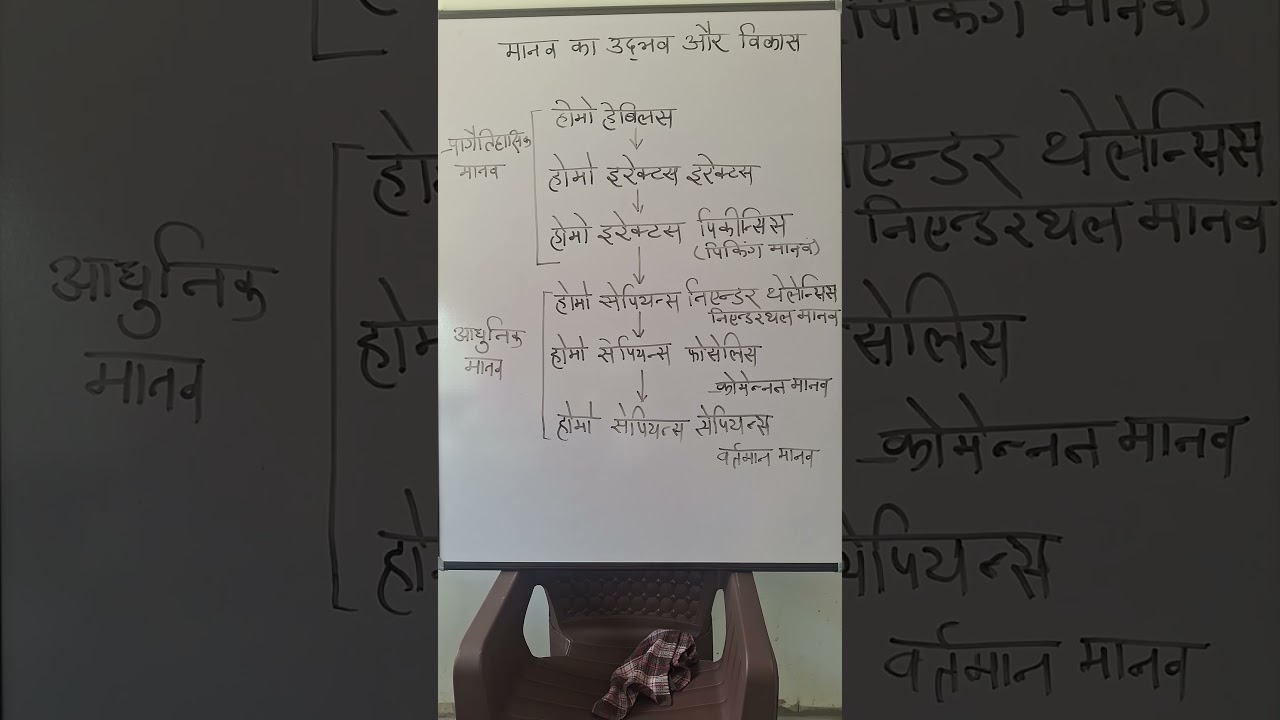 मानव का उद्भव और विकास
होमो हेबिलिस
प्रागैतिहासिक
मानव
होमो इरेक्टस इरेक्टस
होमो इरेक्टस पिकीन्सिस
(पिकिंग मानव)
होमो सेपियन्स निएन्डर थेलेन्सिस
निएन्डरथल मानव
आधुनिक
मानव
होमो सेपियन्स फोसेलिस
क्रोमेन्नन मानव
होमो सेपियन्स सेपियन्स
वर्तमान मानव